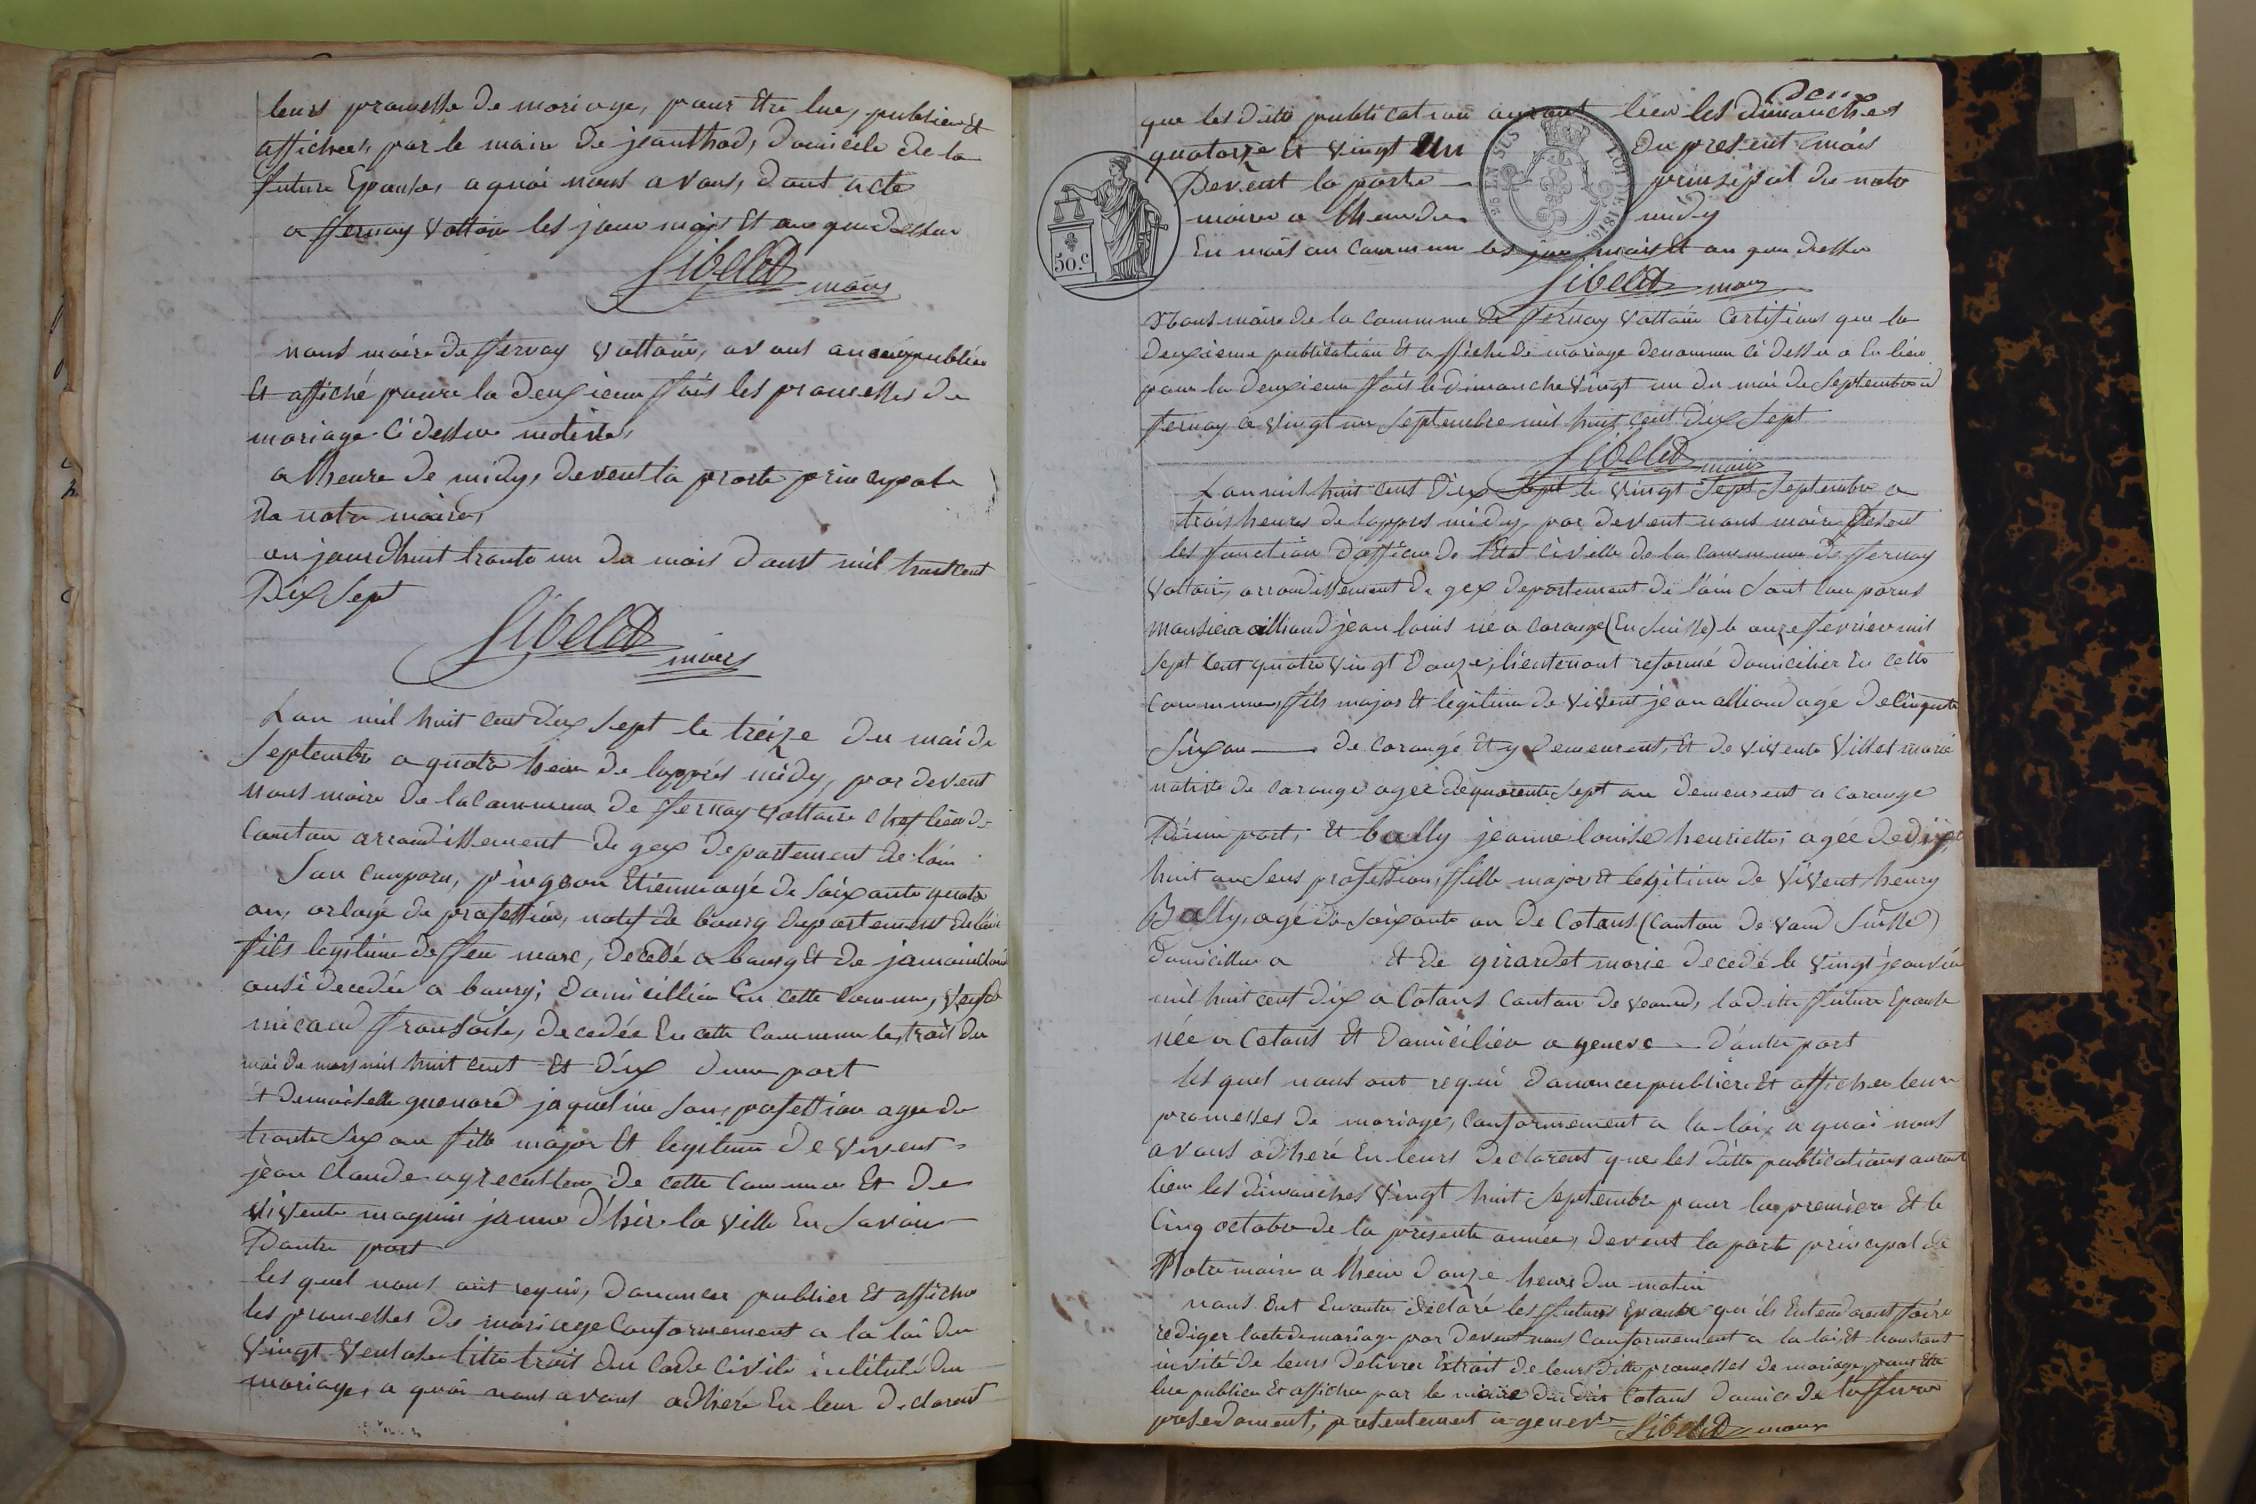 leurs promesse de mariage, pour être lue, publiée et
affichée, par le maire de jeanthod, domicile de la
future Epouse, a quoi nous avons, dont acte
a ffernay Voltaire les jour mois et an que dessus
Sibelet maire
nous maire de ffernay Voltaire, avons publiée
Et affiché pour la deuxieme ffois les promesses de
mariage ci dessus
a lheure de midy, devent la porte principale
de notre mairie,
au jourdhuit trante un du mois daout mil huit cent
Dix Sept
Sibelet maire
Lan mil huit cent dix sept le treize du mai de
Septembre a quatre heure de lapprés midy, par devent
nous maire de la Commune de ffernay Voltaire chef lieu de
Canton arrondissement de gex departement de lain
San comparu, pingeon Etienne agé de Soixante quatre
an, orlogé de profession, natif de bourg departement de lain
fils legitime de ffeu marc, decedé a bourg et de
ausi decedée a bourg; domicillié En cette commune, Veuf de
micaud fransoise, decedée En cette Commune le trois du
mai de mars mil huit cent et dix dune part
et demoiselle quenard jaqueline Sans profession agee de
trante Six an fille major et legitime de vivent
jean claude agreculteur de cette Commune Et de
vivente maguin janne d'hire la ville En Savoie
Dautre part
les quel nous ont requis, danoncer publier Et afficher
les promesses de mariage Conformement a la loi du
Vingt Ventose titre trois du Code Civile intitulé du
mariage, a quoi nous avons adhéré En leur declarent
Deux
que les dites publication auront lieu les dimanches
quatorze et vingt un du present mois
Devent la porte prinsipal de notre
mairie a lheure de midy
En mais an Commun les jour mois Et an que dessus
25 EN SUS LOI DE 1816.
50.c
Sibelet maire
Nous maire de la Commune de ffernay Voltaire Certifions que la
deuxieme publication Et affiche de mariage denommer ci dessus a Eu lieu
pour la deuxieme ffois le dimanche Vingt un du mai de Septembre
ffernay ce vingt un Septembre mil huit cent dix Sept
Sibelet maire
Lan mil huit cent dix Sept le vingt Sept Septembre a
trois heures de lappres midy par devent nous maire ffesent
les ffonction dofficier de letat civille de la Commune de ffernay
Voltaire, arrondissement de gex departement de lain Sont Comparus
Monsieur alliaud jean louis né a Carouge (En Suisse) le onze ffevrier mil
Sept Cent quatre vingt donze, lieutenant reformé domicilier En cette
Commune, ffils major Et legitime de vivent jean alliaud agé de Cinquante
Six an de Carouge Et y demeurent, Et de vivente Villet marie
native de Carouge agee de quarente Sept an demeurent a Carouge
D'une part, Et bally jeanne louise henriette, agée de dix
huit an Sens profession, ffille major et legitime de vivent henry
Bally, agé de Soixante an de Cotans (Canton de Vaud Suisse)
domicillier a Et de girardet marie decedé le vingt jeanvié
mil huit cent dix a Cotans Canton de veaud, ladite ffuture Epouse
née a Cotans Et domiciliée a geneve d'autre part
les quel nous ont requi danoncer publier Et afficher leur
promesses de mariage, Conformement a la loi, a quoi nous
avons adhéré En leurs declarent que les dittes publications auront
lieu les dimanches Vingt huit Septembre pour la premiere Et le
Cinq octobre de la presente année, devent la porte principal de
Notre mairie a lheure donze heure du matin
nous Ont En outre declaré les ffuturs Epoux qu'ils Entendront ffaire
rediger lacte de mariage par devent nous Conformement a la loi, Et
invité de leurs delivrer Extrait de leurs dites promesses de mariage, pour Etre
lue publiée Et affichée par le maire du dit Cotans domicile de la ffuture
presedament, presentement a geneve Sibelet maire